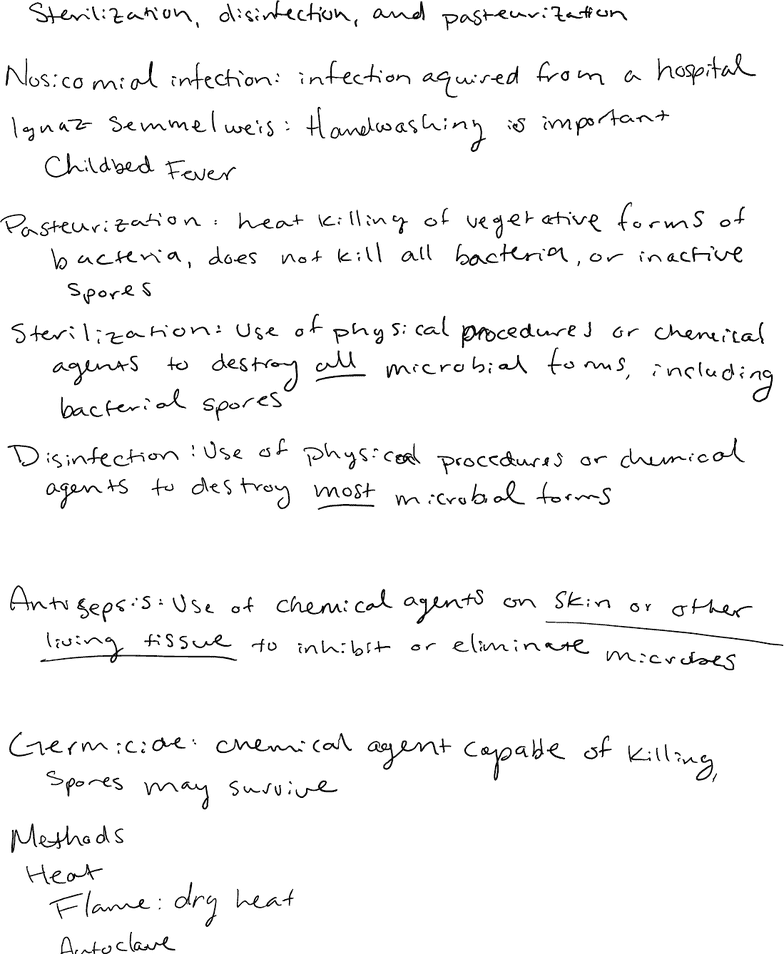 Sterilization, disinfection, and pasteurization
Nosicomial infection: infection aquired from a hospital
Ignaz Semmelweis: Handwashing is important
Childbed Fever
Pasteurization: heat killing of vegetative forms of
bacteria, does not kill all bacteria, or inactive
spores
Sterilization: Use of physical procedures or chemical
agents to destroy all microbial forms, including
bacterial spores
Disinfection: Use of physical procedures or chemical
agents to destroy most microbial forms
Antisepsis: Use of chemical agents on skin or other
living tissue to inhibit or eliminate microbes
Germicide: chemical agent capable of killing,
Spores may survive
Methods
Heat
Flame: dry heat
Autoclave